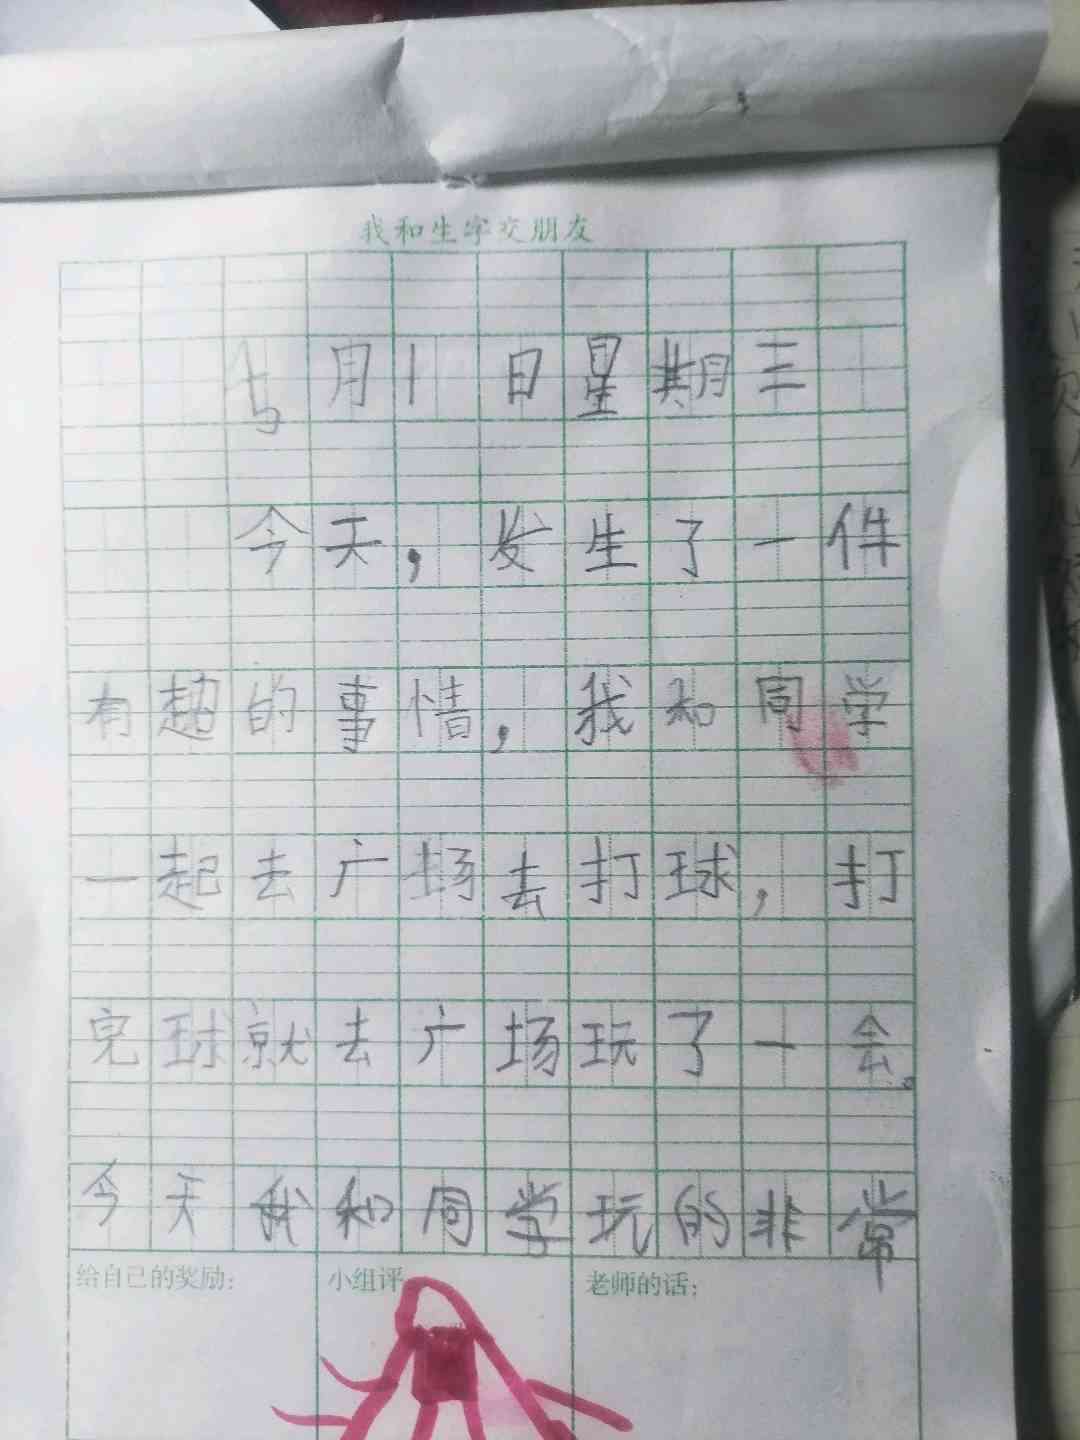 我和生字交朋友
月1日星期三
今天，发生了一件
有趣的事情，我和同学
一起去广场去打球，打
完球就去广场玩了一会。
今天我和同学玩的非常
给自己的奖励：
小组评
老师的话：